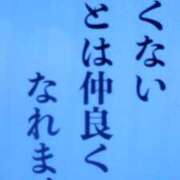 くない
とは仲良く
なれま